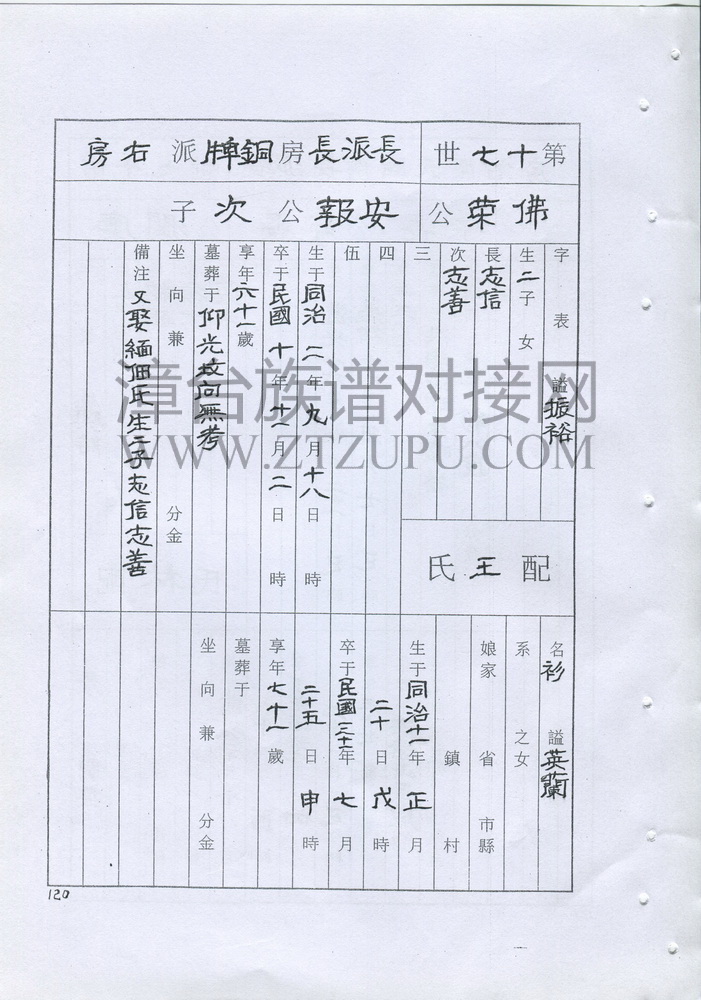 第十七世
長派長房銅牌派右房
佛荣公
安報公次子
字表 謚振裕
生二子女
長志信
次志善
三
四
伍
生于同治二年九月十八日時
卒于民國十年十二月二日時
享年六十一歲
墓葬于仰光坟向無考
坐向兼分金
備注又娶緬佃氏生二子志信志善
配王氏
名衫 謚英蘭
系之女
娘家省市縣
鎮村
生于同治十一年正月
二十日戊時
卒于民國三十一年七月
二十五日申時
享年七十一歲
墓葬于
坐向兼分金
120
漳台族谱对接网
WWW.ZTZUPU.COM